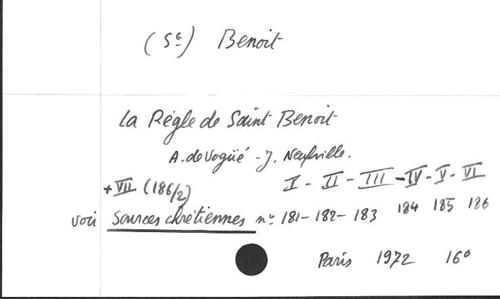 (St) Benoit
La Règle de Saint Benoit
A. de Vogüé - J. Neufville.
+ VII (186/2) I - II - III - IV - V - VI
voir Sources chrétiennes nos 181 - 182 - 183 184 185 186
Paris 1972 16°